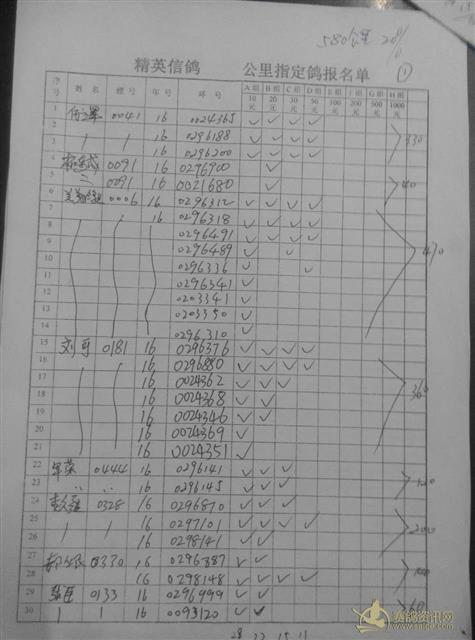 580公里 20%
①
精英信鸽 公里指定鸽报名单
序号 姓名 棚号 年号 环号 A组10元 B组20元 C组30元 D组50元 E组100元 F组200元 G组500元 H组1000元
1 0041 16 0024365 ✓ ✓ ✓ ✓
2 16 0296188 ✓ ✓ ✓ ✓ 330
3 16 0296200 ✓ ✓ ✓ ✓
4 0091 16 0296900 ✓
5 0091 16 0021680 ✓ 40
6 0006 16 0296312 ✓ ✓ ✓ ✓
7 16 0296318 ✓ ✓ ✓ ✓
8 0296491 ✓ ✓ ✓ ✓
9 0296489 ✓ ✓ 470
10 0296336 ✓ ✓
11 0296341 ✓
12 0203341 ✓
13 0203350 ✓
14 0296310 ✓
15 刘哥 0181 16 0296376 ✓ ✓ ✓ ✓
16 16 0296880 ✓ ✓ ✓ ✓
17 16 0024362 ✓ ✓
18 16 0024368 ✓ ✓ 360
19 16 0024346 ✓ ✓
20 16 0024369 ✓
21 16 0024351 ✓
22 0444 16 0296141 ✓ ✓ ✓
23 16 0296145 ✓ ✓ ✓ 120
24 0328 16 0296870 ✓ ✓ ✓
25 16 0297101 ✓ ✓ ✓ ✓ 200
26 16 0298141 ✓ ✓
27 0330 16 0296887 ✓ ✓
28 16 0298148 ✓ ✓ ✓ ✓
29 0133 16 0296999 ✓ ✓
30 16 0093120 ✓ ✓ 60
28 22 15 11
赛鸽资讯网
www.saige.com